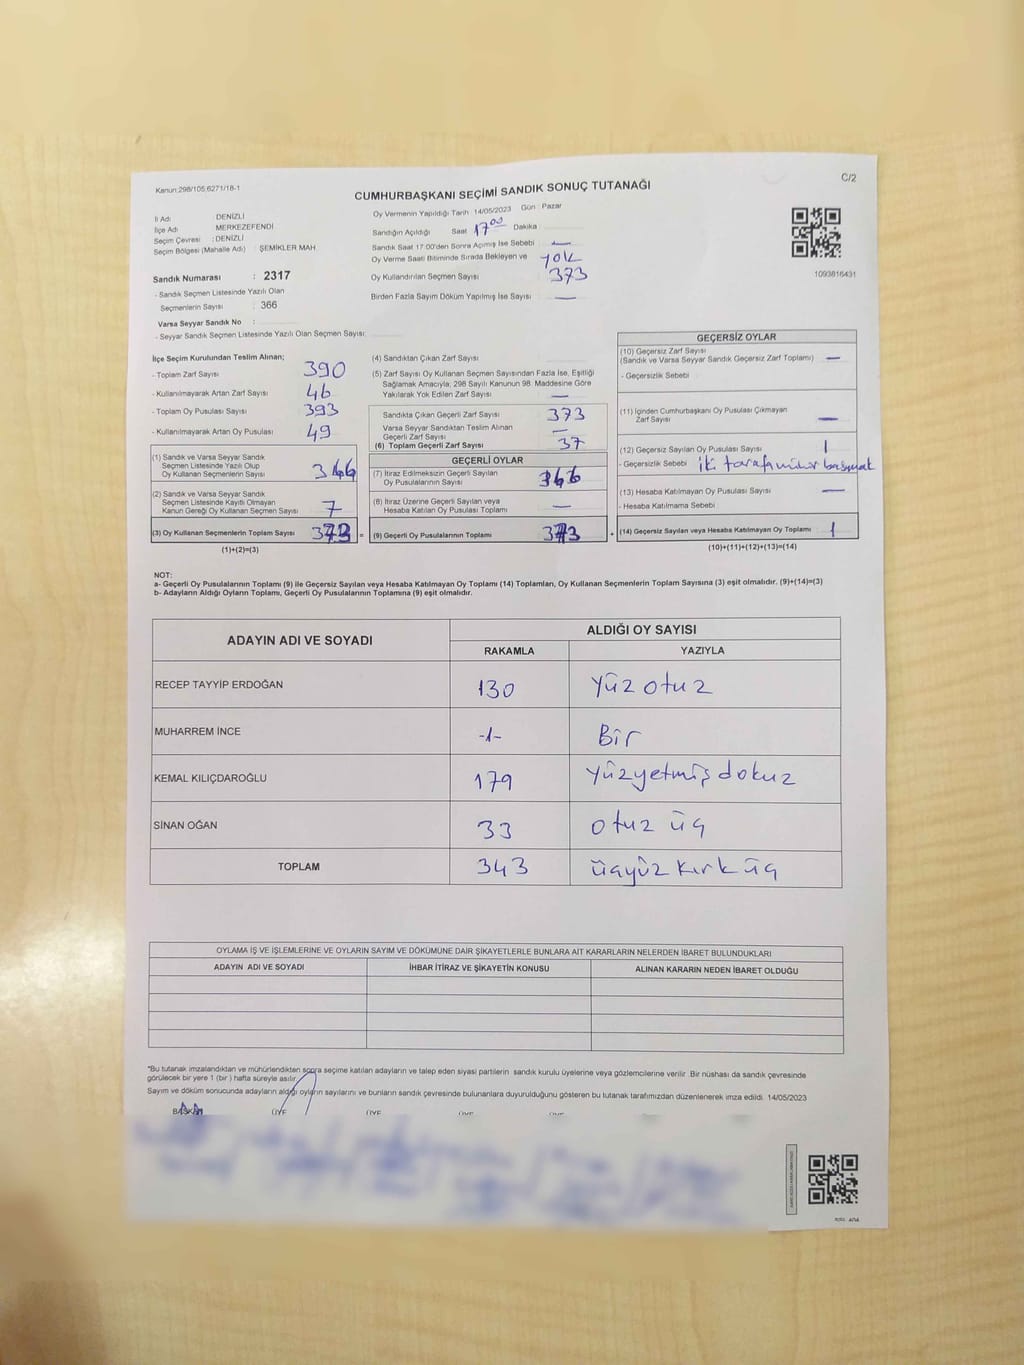 Kanun:298/105,6271/18-1
C/2
CUMHURBAŞKANI SEÇİMİ SANDIK SONUÇ TUTANAĞI
İl Adı DENİZLİ
İlçe Adı MERKEZEFENDİ
Seçim Çevresi : DENİZLİ
Seçim Bölgesi (Mahalle Adı) : ŞEMİKLER MAH.
Sandık Numarası : 2317
- Sandık Seçmen Listesinde Yazılı Olan
Seçmenlerin Sayısı : 366
Varsa Seyyar Sandık No :
- Seyyar Sandık Seçmen Listesinde Yazılı Olan Seçmen Sayısı:
Oy Vermenin Yapıldığı Tarih 14/05/2023 Gün : Pazar
Sandığın Açıldığı Saat 17 00 Dakika
Sandık Saat 17:00'den Sonra Açılmış İse Sebebi —
Oy Verme Saati Bitiminde Sırada Bekleyen ve yok
Oy Kullandırılan Seçmen Sayısı 373
Birden Fazla Sayım Döküm Yapılmış İse Sayısı —
1093816431
İlçe Seçim Kurulundan Teslim Alınan;
- Toplam Zarf Sayısı 390
- Kullanılmayarak Artan Zarf Sayısı 46
- Toplam Oy Pusulası Sayısı 393
- Kullanılmayarak Artan Oy Pusulası 49
(1) Sandık ve Varsa Seyyar Sandık
Seçmen Listesinde Yazılı Olup
Oy Kullanan Seçmenlerin Sayısı
(2) Sandık ve Varsa Seyyar Sandık
Seçmen Listesinde Kayıtlı Olmayan
Kanun Gereği Oy Kullanan Seçmen Sayısı 7
(3) Oy Kullanan Seçmenlerin Toplam Sayısı =
(1)+(2)=(3)
(4) Sandıktan Çıkan Zarf Sayısı
(5) Zarf Sayısı Oy Kullanan Seçmen Sayısından Fazla İse, Eşitliği
Sağlamak Amacıyla, 298 Sayılı Kanunun 98. Maddesine Göre
Yakılarak Yok Edilen Zarf Sayısı —
Sandıkta Çıkan Geçerli Zarf Sayısı 373
Varsa Seyyar Sandıktan Teslim Alınan
Geçerli Zarf Sayısı —
(6) Toplam Geçerli Zarf Sayısı 37
GEÇERLİ OYLAR
(7) İtiraz Edilmeksizin Geçerli Sayılan
Oy Pusulalarının Sayısı
(8) İtiraz Üzerine Geçerli Sayılan veya
Hesaba Katılan Oy Pusulası Toplamı —
(9) Geçerli Oy Pusulalarının Toplamı +
GEÇERSİZ OYLAR
(10) Geçersiz Zarf Sayısı
(Sandık ve Varsa Seyyar Sandık Geçersiz Zarf Toplamı) —
- Geçersizlik Sebebi
(11) İçinden Cumhurbaşkanı Oy Pusulası Çıkmayan
Zarf Sayısı —
(12) Geçersiz Sayılan Oy Pusulası Sayısı 1
- Geçersizlik Sebebi iki tarafa mühür basmak
(13) Hesaba Katılmayan Oy Pusulası Sayısı —
- Hesaba Katılmama Sebebi
(14) Geçersiz Sayılan veya Hesaba Katılmayan Oy Toplamı 1
(10)+(11)+(12)+(13)=(14)
NOT:
a- Geçerli Oy Pusulalarının Toplamı (9) ile Geçersiz Sayılan veya Hesaba Katılmayan Oy Toplamı (14) Toplamları, Oy Kullanan Seçmenlerin Toplam Sayısına (3) eşit olmalıdır. (9)+(14)=(3)
b- Adayların Aldığı Oyların Toplamı, Geçerli Oy Pusulalarının Toplamına (9) eşit olmalıdır.
ADAYIN ADI VE SOYADI
ALDIĞI OY SAYISI
RAKAMLA YAZIYLA
RECEP TAYYİP ERDOĞAN 130 Yüz otuz
MUHARREM İNCE -1- Bir
KEMAL KILIÇDAROĞLU 179 Yüzyetmiş dokuz
SİNAN OĞAN 33 otuz üç
TOPLAM 343 üçyüz kırk üç
OYLAMA İŞ VE İŞLEMLERİNE VE OYLARIN SAYIM VE DÖKÜMÜNE DAİR ŞİKAYETLERLE BUNLARA AİT KARARLARIN NELERDEN İBARET BULUNDUKLARI
ADAYIN ADI VE SOYADI İHBAR İTİRAZ VE ŞİKAYETİN KONUSU ALINAN KARARIN NEDEN İBARET OLDUĞU
*Bu tutanak imzalandıktan ve mühürlendikten sonra seçime katılan adayların ve talep eden siyasi partilerin sandık kurulu üyelerine veya gözlemcilerine verilir. Bir nüshası da sandık çevresinde
görülecek bir yere 1 (bir) hafta süreyle asılır.
Sayım ve döküm sonucunda adayların aldığı oyların sayılarını ve bunların sandık çevresinde bulunanlara duyurulduğunu gösteren bu tutanak tarafımızdan düzenlenerek imza edildi. 14/05/2023
BAŞKAN ÜYE ÜYE ÜYE ÜYE